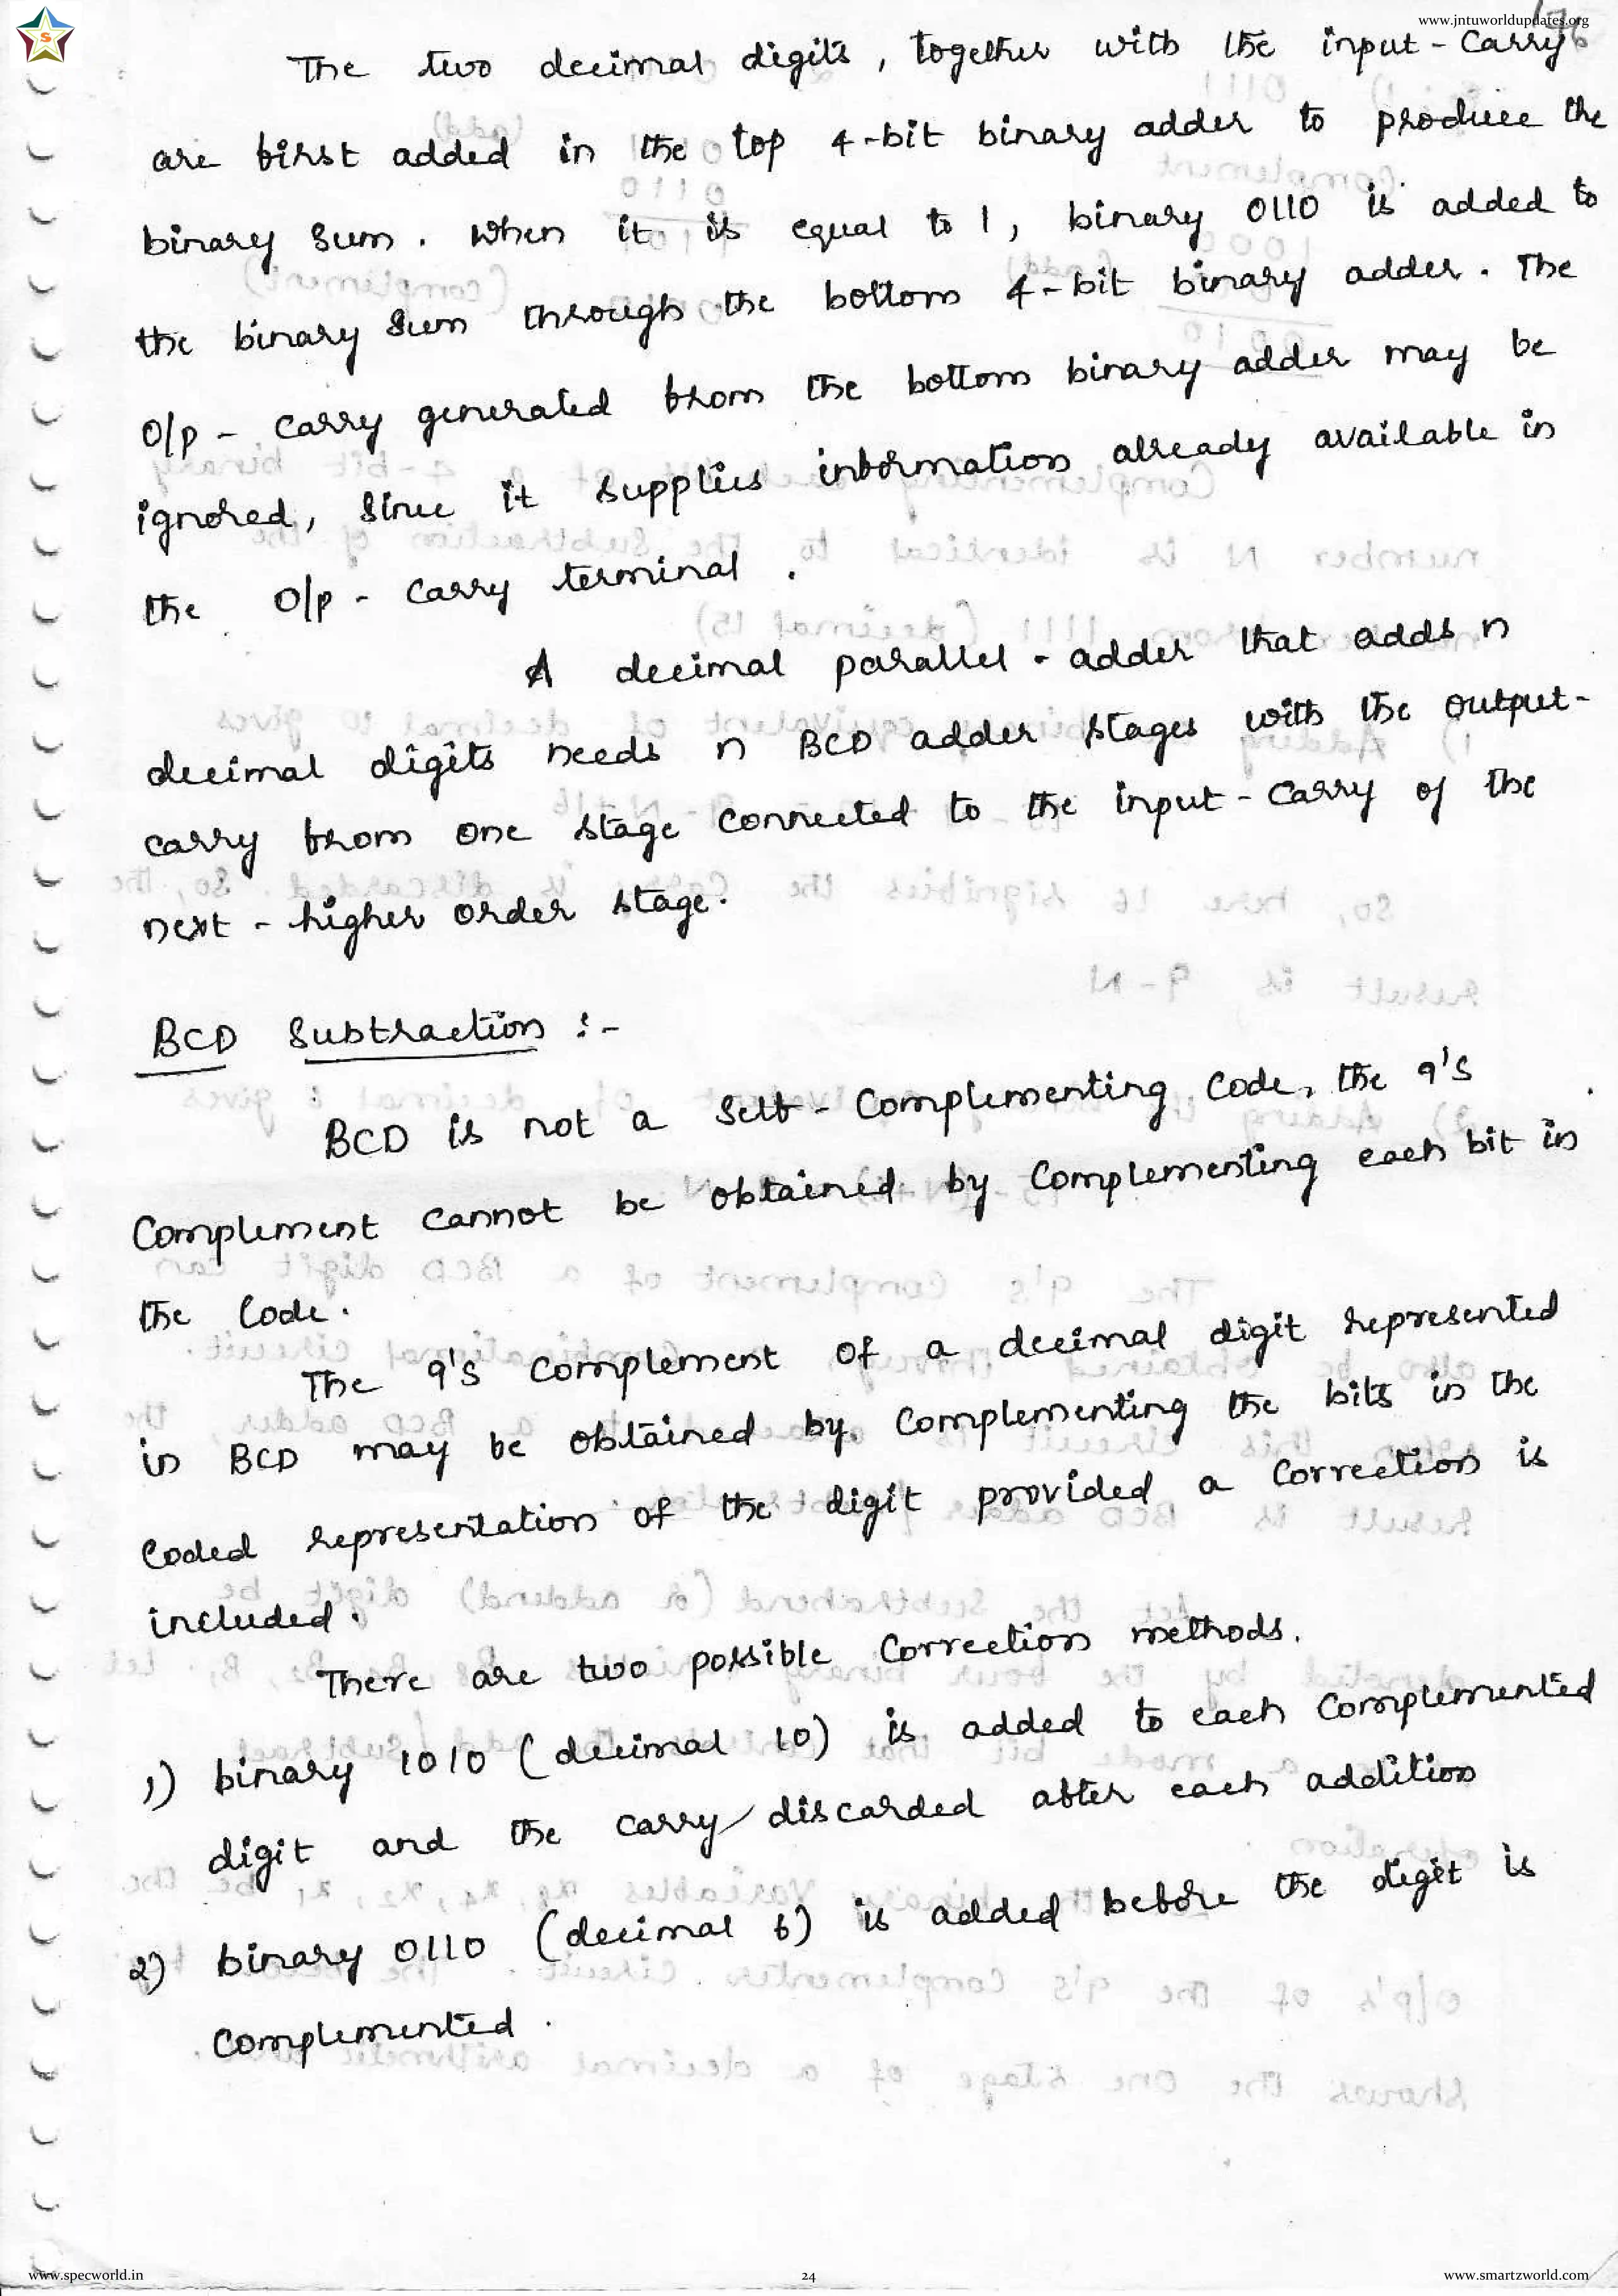 www.jntuworldupdates.org
The two decimal digits, together with the input-carry
are first added in the top 4-bit binary adder to produce the
binary sum. When it is equal to 1, binary 0110 is added to
the binary sum through the bottom 4-bit binary adder. The
O/p - carry generated from the bottom binary adder may be
ignored, since it supplies information already available in
the O/p - carry terminal.
A decimal parallel-adder that adds n
decimal digits needs n BCD adder stages with the output-
carry from one stage connected to the input-carry of the
next - higher order stage.
BCD Subtraction :-
BCD is not a self-complementing code, the 9's
complement cannot be obtained by complementing each bit in
the code.
The 9's complement of a decimal digit represented
in BCD may be obtained by complementing the bits in the
coded representation of the digit provided a correction is
included.
There are two possible correction methods.
1) binary 1010 (decimal 10) is added to each complemented
digit and the carry discarded after each addition
2) binary 0110 (decimal 6) is added before the digit is
complemented.
www.specworld.in
24
www.smartzworld.com